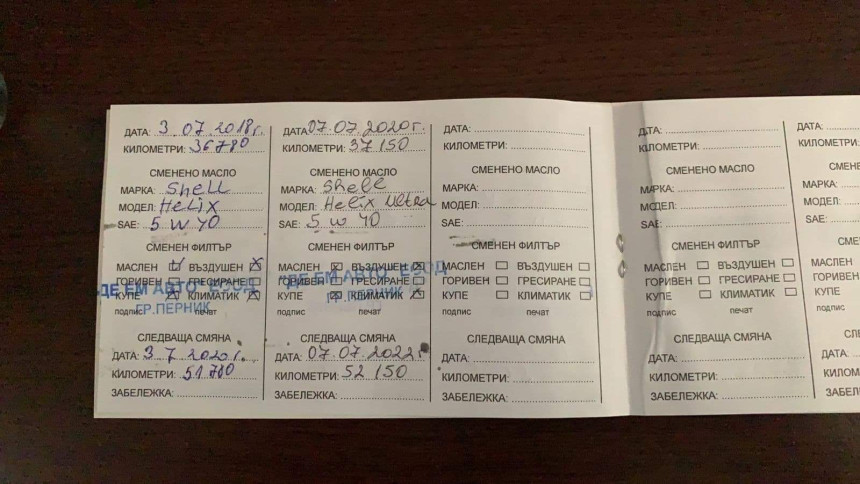 ДАТА: 3.07.2018г.
КИЛОМЕТРИ: 36780
СМЕНЕНО МАСЛО
МАРКА: Shell
МОДЕЛ: Helix
SAE: 5 W 40
СМЕНЕН ФИЛТЪР
МАСЛЕН ВЪЗДУШЕН
ГОРИВЕН ГРЕСИРАНЕ
КУПЕ КЛИМАТИК
подпис печат
"ДЕ ЕМ АВТО" ЕООД
ГР.ПЕРНИК
СЛЕДВАЩА СМЯНА
ДАТА: 3.7.2020г.
КИЛОМЕТРИ: 51780
ЗАБЕЛЕЖКА:
ДАТА: 07.07.2020г.
КИЛОМЕТРИ: 37150
СМЕНЕНО МАСЛО
МАРКА: Shell
МОДЕЛ: Helix Ultra
SAE: 5 W 40
СМЕНЕН ФИЛТЪР
МАСЛЕН ВЪЗДУШЕН
ГОРИВЕН ГРЕСИРАНЕ
КУПЕ КЛИМАТИК
подпис печат
"ДЕ ЕМ АВТО" ЕООД
ГР.ПЕРНИК
СЛЕДВАЩА СМЯНА
ДАТА: 07.07.2022г
КИЛОМЕТРИ: 52150
ЗАБЕЛЕЖКА:
ДАТА:
КИЛОМЕТРИ:
СМЕНЕНО МАСЛО
МАРКА:
МОДЕЛ:
SAE:
СМЕНЕН ФИЛТЪР
МАСЛЕН ВЪЗДУШЕН
ГОРИВЕН ГРЕСИРАНЕ
КУПЕ КЛИМАТИК
подпис печат
СЛЕДВАЩА СМЯНА
ДАТА:
КИЛОМЕТРИ:
ЗАБЕЛЕЖКА:
ДАТА:
КИЛОМЕТРИ:
СМЕНЕНО МАСЛО
МАРКА:
МОДЕЛ:
SAE:
СМЕНЕН ФИЛТЪР
МАСЛЕН ВЪЗДУШЕН
ГОРИВЕН ГРЕСИРАНЕ
КУПЕ КЛИМАТИК
подпис печат
СЛЕДВАЩА СМЯНА
ДАТА:
КИЛОМЕТРИ:
ЗАБЕЛЕЖКА:
ДАТА:
КИЛОМЕТРИ
СМЕНЕ
МАРКА:
МОДЕЛ:
SAE:
СМЕНЕ
МАСЛЕН
ГОРИВЕН
КУПЕ
подпис
СЛЕДВ
ДАТА:
КИЛОМ
ЗАБЕЛ